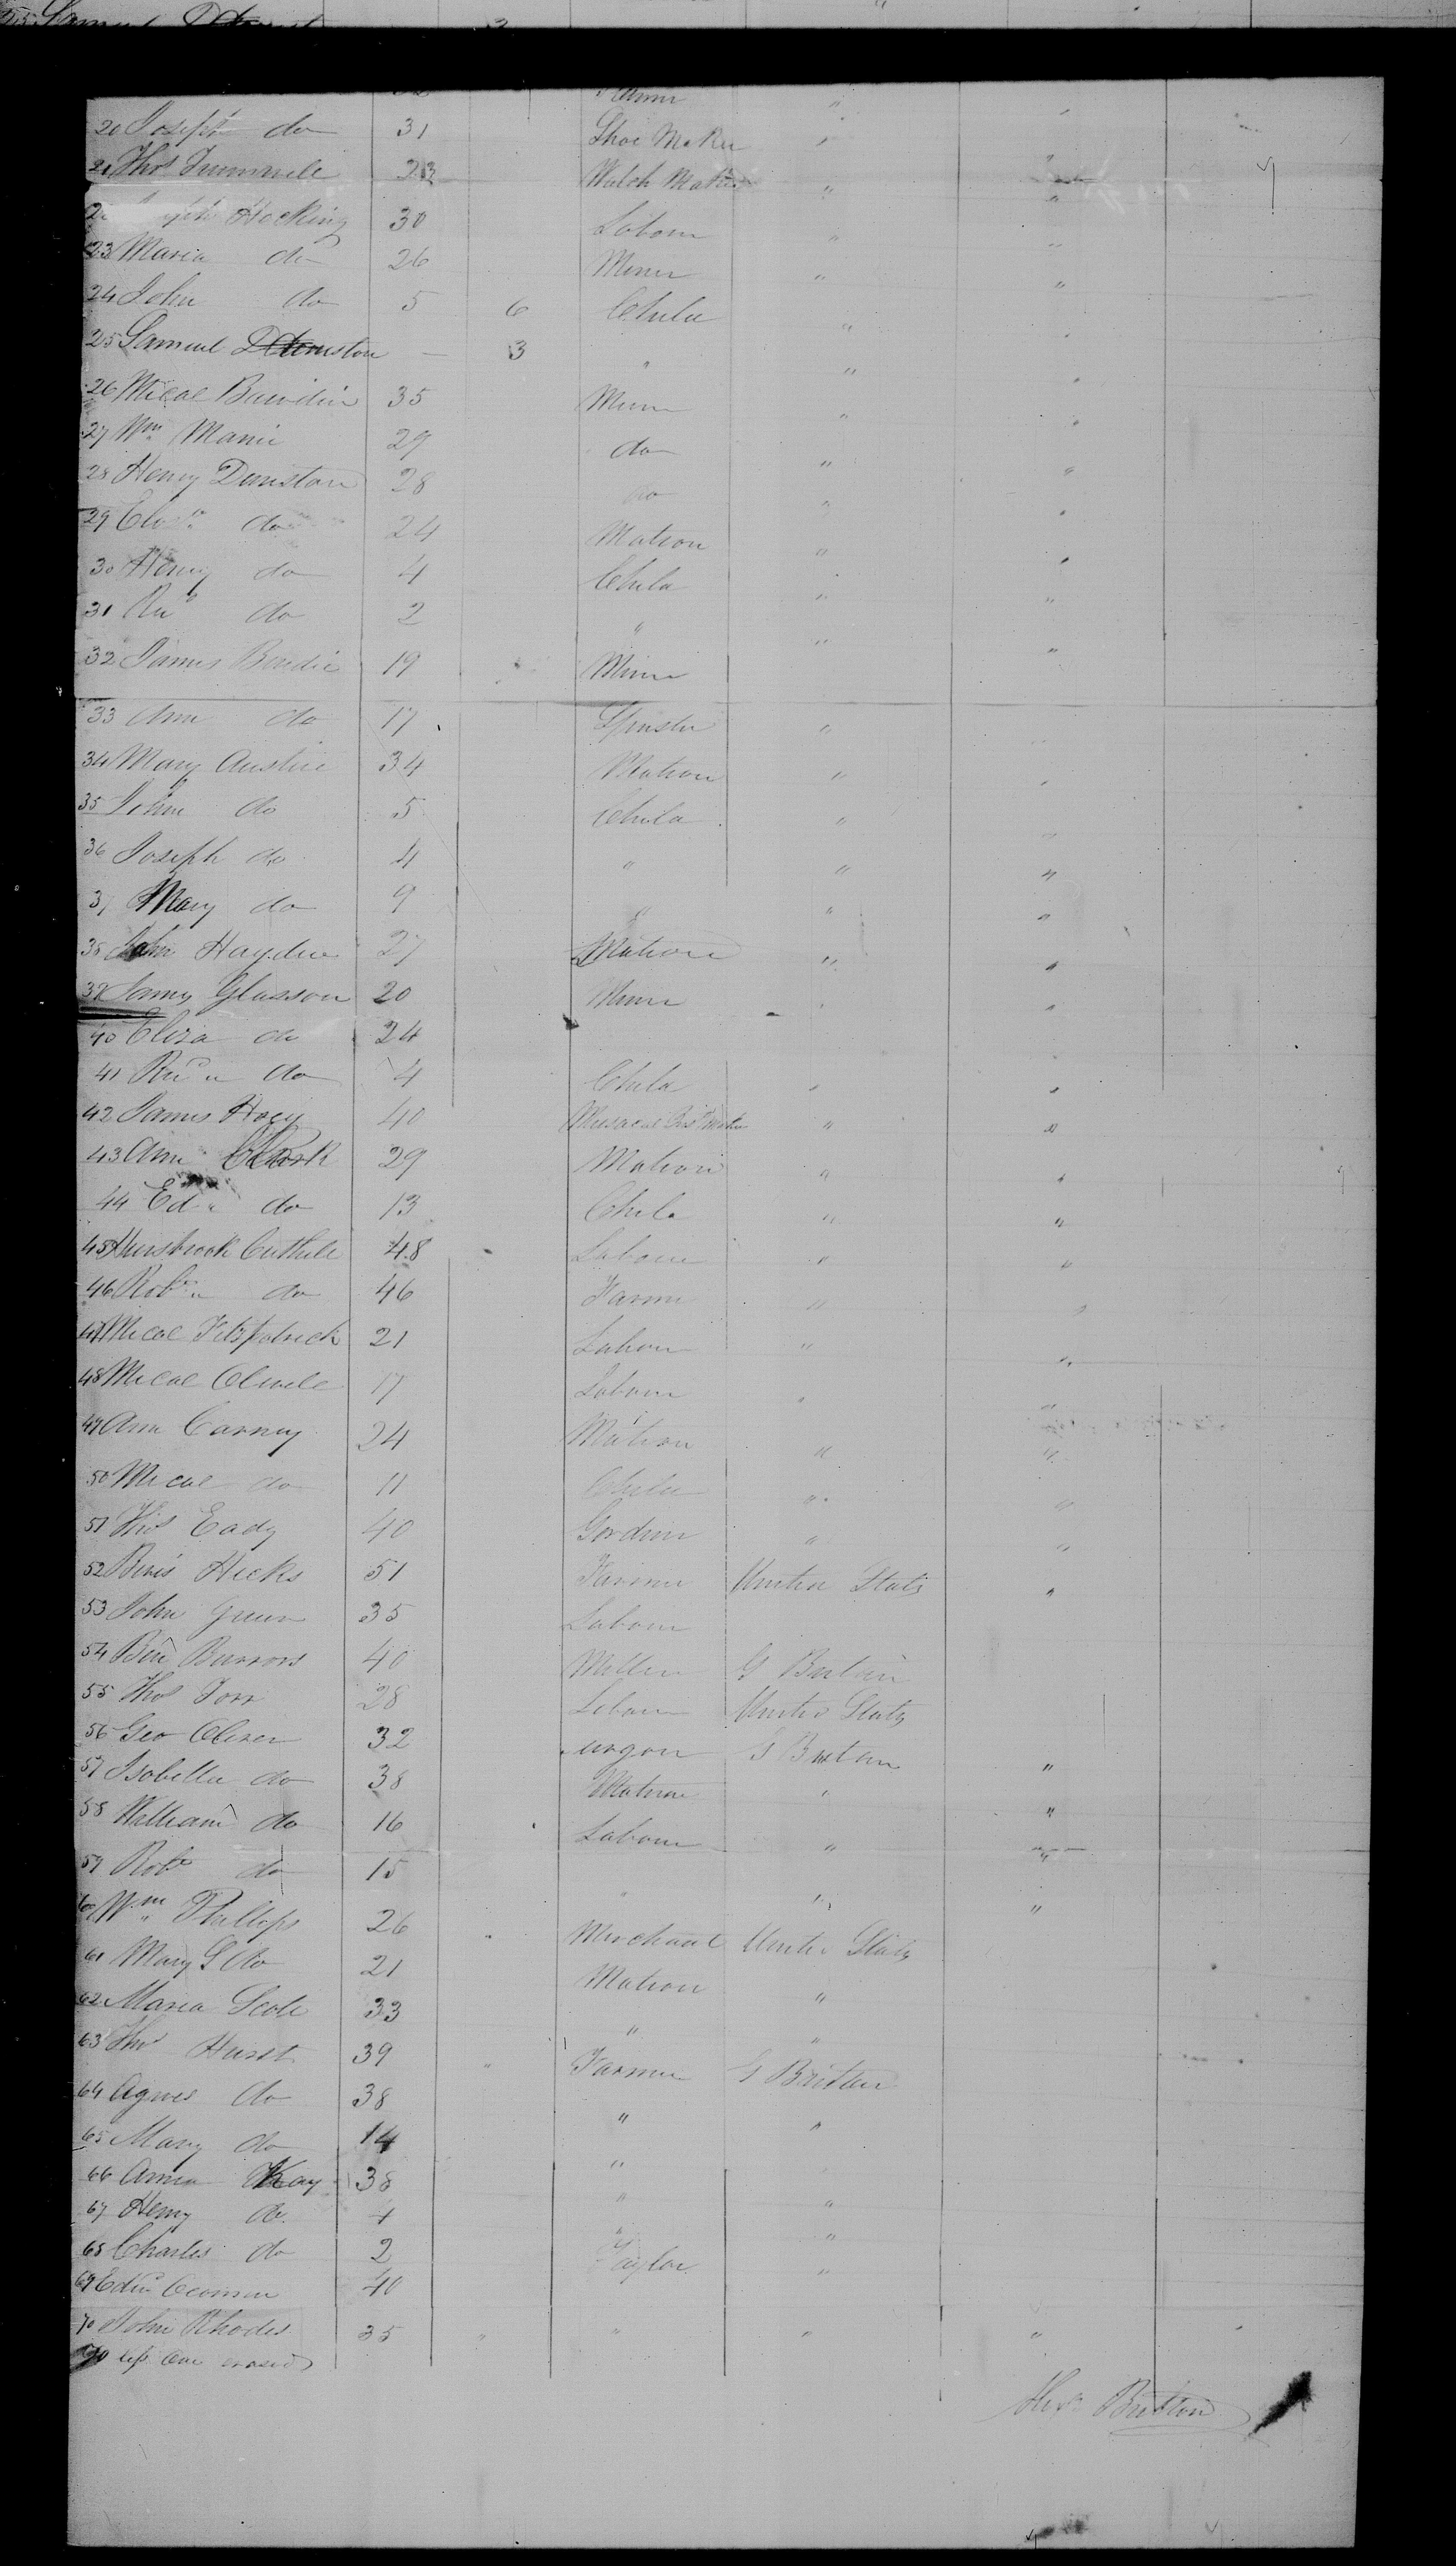 25 Samuel
Farmer "
20 Joseph do 31 Shoe Maker " "
21 Thos Trummele 23 Watch Maker " "
Hocking 30 Labour " "
23 Maria do 26 Miner " "
24 John do 5 6 Child " "
25 Samuel Dunston — 3 " " "
26 Micael Bawdin 35 Miner " "
27 Wm 29 do " "
28 Henry Dunstan 28 do " "
29 Elizh do 24 Matron " "
30 Henry do 4 Child " "
31 do 2 " " "
32 James 19 Miner
33 Ann do 17 Spinster "
34 Mary Austin 34 Matron " "
35 John do 5 Child " "
36 Joseph do 4 " " "
37 Mary do 9 " " "
38 John Hayden 27 Matron " "
39 James Glasson 20 Miner " "
40 Eliza do 24
41 do 4 Child " "
42 James Hoey 40 Musical Inst Maker " "
43 Ann Clark 29 Matron " "
44 Ed do 13 Child " "
45 Cuthill 48 Labour " "
46 Robt do 46 Farmer " "
47 Micael Fitzpatrick 21 Labour " "
48 Micael 17 Labour " "
49 Ann Carney 24 Matron " "
50 Micael do 11 Child " "
51 Thos Eady 40 Gardiner " "
52 Hicks 51 Farmer United States "
53 John Green 35 Labour
54 Ben Burrows 40 Miller G Britain
55 Thos Torr 28 Labour United States
56 Geo Oliver 32 G Britain "
57 Isabella do 38 Matron " "
58 William do 16 Labour " "
59 Robt do 15 " " "
60 Wm Phillips 26 " Merchant United States
61 Mary S do 21 Matron "
62 Maria Scott 33 " "
63 Thos Hurst 39 " Farmer G Britain
64 Agnes do 38 " "
65 Mary do 14 "
66 Anna Kay 38 " "
67 Henry do 4 " "
68 Charles do 2 Taylor "
69 Edwd 40
70 John Rhodes 35 " " " "
70 less One erased
Alexr Britton